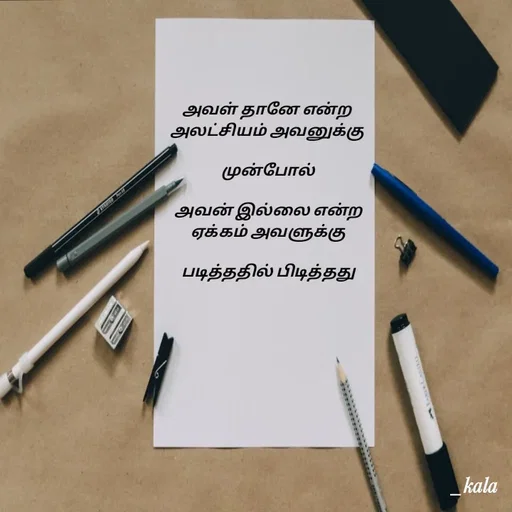 அவள் தானே என்ற
அலட்சியம் அவனுக்கு
முன்போல்
அவன் இல்லை என்ற
ஏக்கம் அவளுக்கு
படித்ததில் பிடித்தது
_kala